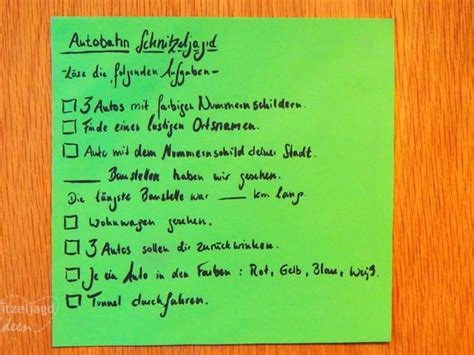 Autobahn Schnitzeljagd
-Löse die folgenden Aufgaben-
3 Autos mit farbigen Nummernschildern.
Finde einen lustigen Ortsnamen.
Auto mit dem Nummernschild deiner Stadt.
____ Baustellen haben wir gesehen.
Die längste Baustelle war ___ km lang.
Wohnwagen gesehen.
3 Autos sollen dir zurückwinken.
Je ein Auto in den Farben: Rot, Gelb, Blau, Weiß.
Tunnel durchfahren.
itzeljagd
deen